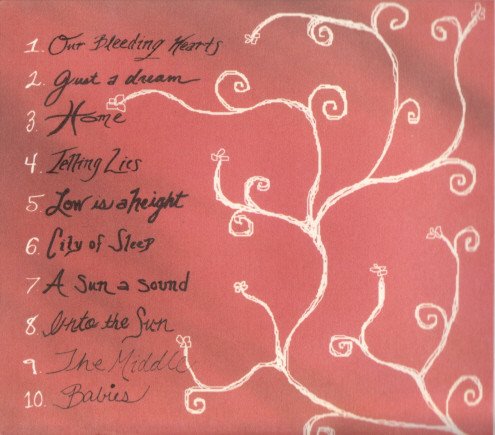 1. Our Bleeding Hearts
2. Just a dream
3. Home
4. Telling Lies
5. Low is a height
6. City of Sleep
7. A Sun a sound
8. Into the Sun
9. The Middle
10. Babies